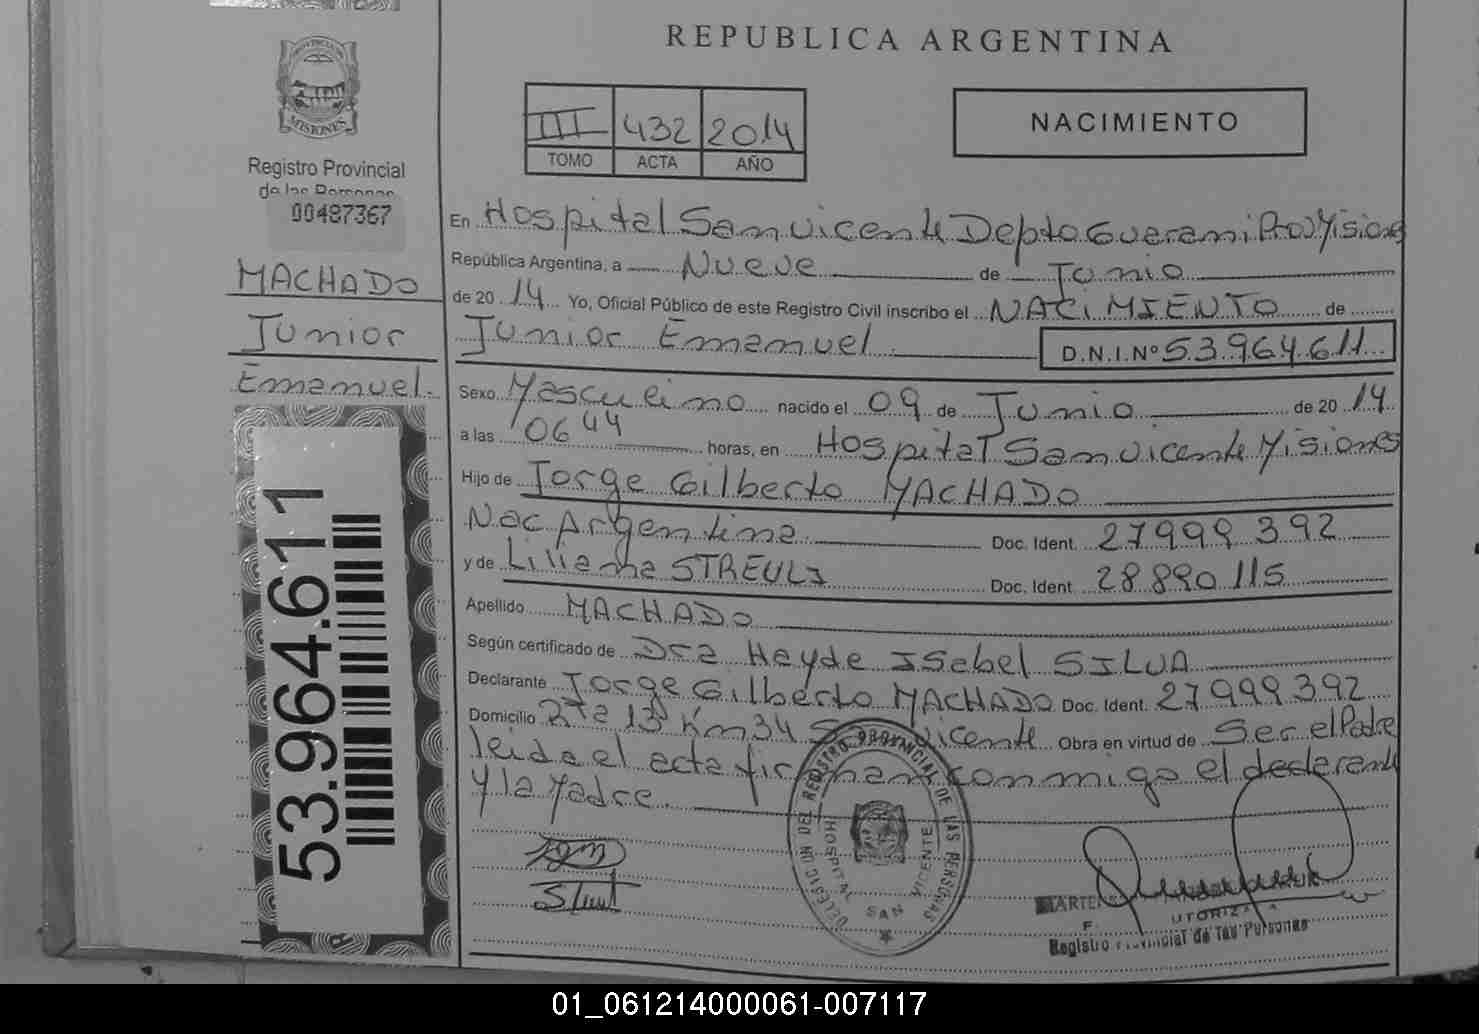 PROVINCIA DE
MISIONES
Registro Provincial
de las Personas
00487367
MACHADO
Junior
Emanuel.
53.964.611
REPUBLICA ARGENTINA
III 432 2014
TOMO ACTA AÑO
NACIMIENTO
En Hospital San vicente Depto Guarani Prov Misiones
República Argentina, a Nueve de Junio
de 2014 Yo, Oficial Público de este Registro Civil inscribo el NACIMIENTO de
Junior Emanuel. D.N.I.Nº 53.964.611
Sexo Masculino nacido el 09 de Junio de 2014
a las 06 44 horas, en Hospital San vicente Misiones
Hijo de Jorge Gilberto MACHADO
Nac Argentina Doc. Ident. 27999392
y de Liliana STREULI Doc. Ident. 28890115
Apellido MACHADO
Según certificado de Dra Heyde Isabel SILVA
Declarante Jorge Gilberto MACHADO Doc. Ident. 27999392
Domicilio Rta 13 Km 34 San vicente Obra en virtud de Ser el Padre
leida el acta firman conmigo el declarante
y la Madre.
DELEGACION DEL REGISTRO PROVINCIAL DE LAS PERSONAS
HOSPITAL SAN VICENTE
Registro Provincial de las Personas
01_061214000061-007117